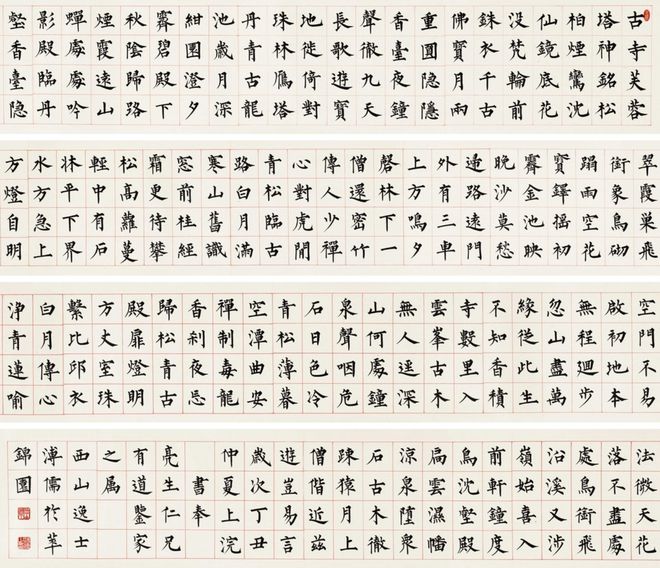 古寺芙蓉
塔神銘松
柏煙鸞沈
仙鏡底花
没梵輪前
銖衣千古
佛寶月雨
重圓隱隱
香臺夜鐘
聲徹九天
長歌遊寶
地徙倚對
珠林鴈塔
丹青古龍
池歲月深
紺園澄夕
霽碧殿下
秋陰歸路
煙霞遠山
蟬處處吟
影殿臨丹
壑香臺隱
翠霞巢飛
銜象鳥砌
蹋雨空花
寶鐸摇初
霽金池映
晚沙莫愁
遶路遠門
外有三車
上方鳴夕
磬林下一
僧還密竹
傳人少禪
心對虎閒
青松臨古
路白月滿
寒山舊識
窓前桂經
霜更待攀
松高蘿蔓
輕中有石
牀平下界
水方急上
方燈自明
空門不易
啟初地本
無程迴步
忽山盡萬
緣從此生
不知香積
寺數里入
雲峯古木
無人逕深
山何處鐘
泉聲咽危
石日色冷
青松薄暮
空潭曲安
禪制毒龍
香刹夜忌
歸松青古
殿扉燈明
方丈室珠
繫比邱衣
白月傳心
净青蓮喻
法微天花
落不盡處
處鳥銜飛
沿溪又涉
嶺始喜入
前軒鐘度
鳥沈堅殿
扃雲濕幡
涼泉墮衆
石古木徹
踈猿月上
僧階近兹
遊豈易言
歲次丁丑
仲夏上浣
書奉
亮生仁兄
有道鑒家
之屬
西山逸士
溥儒於萃
錦園